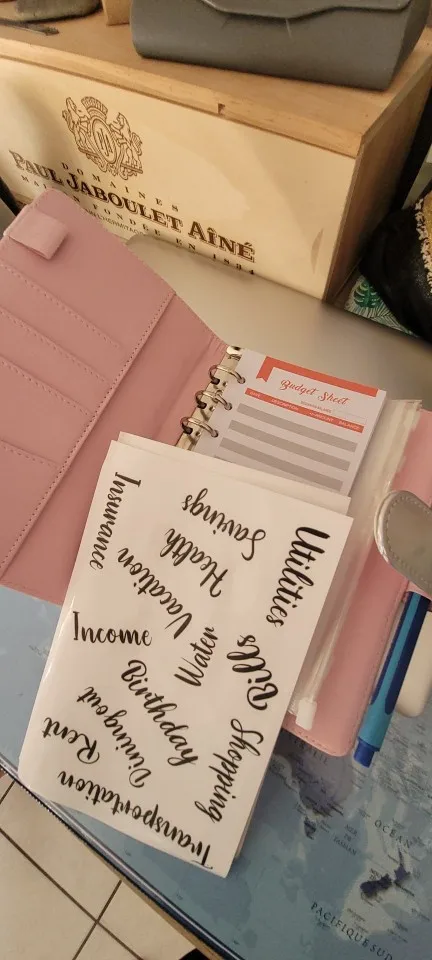 DOMAINES
PAUL JABOULET AÎNÉ
MAISON FONDÉE EN 1834
Budget Sheet
DATE DESCRIPTION BALANCE
Insurance
Savings
Health
Utilities
Vacation
Income
Water
Bills
Dinningout
Shopping
Rent
Transportation
OCEAN
PACIFIQUE SUD